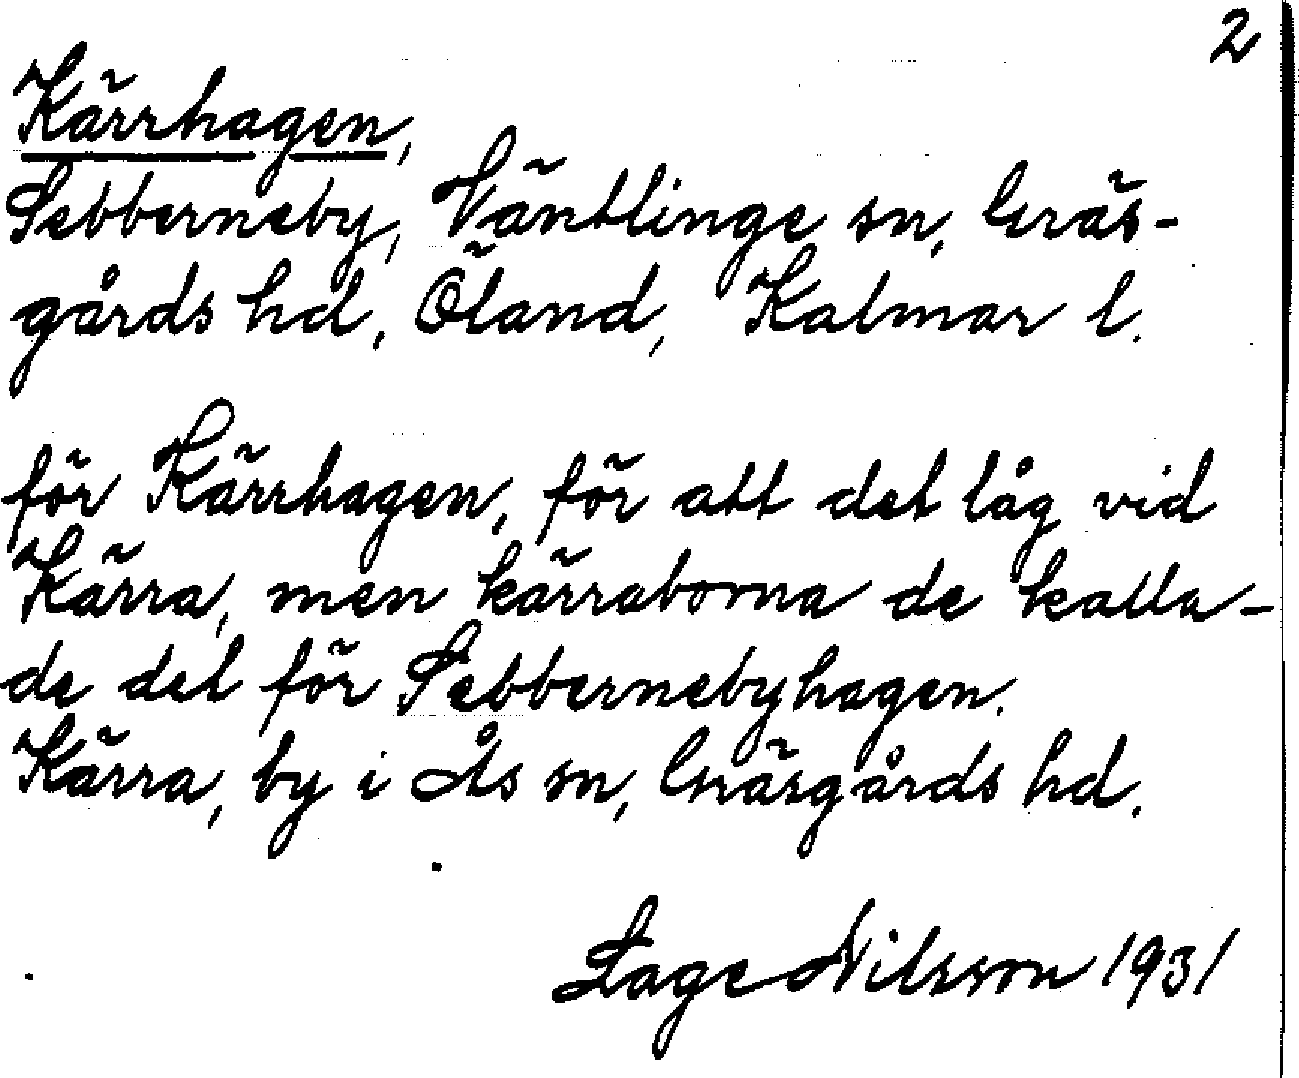 2
Kärrhagen,
Sebberneby, Väntlinge sn, Gräs-
gårds hd, Öland, Kalmar l.
för Kärrhagen, för att det låg vid
Kärra, men kärraborna de kalla-
de det för Sebbernebyhagen.
Kärra, by i Ås sn, Gräsgårds hd.
Lage Nilsson 1931